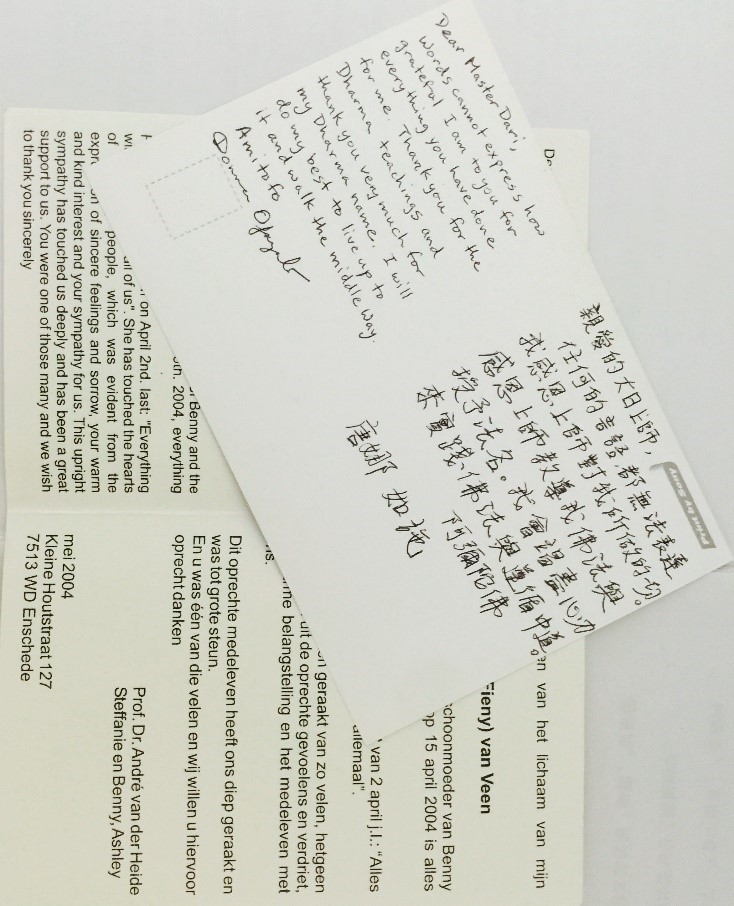 Dear Master Dari,
Words cannot express how
grateful I am to you for
everything you have done
for me. Thank you for the
Dharma teachings and
thank you very much for
my Dharma name. I will
do my best to live up to
it and walk the middle way.
Amitofo
Donna
親愛的大日上師，
任何的言語都無法表達
我感恩上師對我所做的一切。
感恩上師教導我佛法與
授予法名。我會竭盡心力
來實踐佛法與遵循中道。
阿彌陀佛
唐娜
Print by Sony
Benny and the
2004, everything
on April 2nd. last: "Everything
of us". She has touched the hearts
of people, which was evident from the
of sincere feelings and sorrow, your warm
and kind interest and your sympathy for us. This upright
sympathy has touched us deeply and has been a great
support to us. You were one of those many and we wish
to thank you sincerely
van het lichaam van mijn
Fieny) van Veen
schoonmoeder van Benny
op 15 april 2004 is alles
van 2 april j.l.: "Alles
allemaal".
geraakt van zo velen, hetgeen
uit de oprechte gevoelens en verdriet,
belangstelling en het medeleven met
ons.
Dit oprechte medeleven heeft ons diep geraakt en
was tot grote steun.
En u was één van die velen en wij willen u hiervoor
oprecht danken
Prof. Dr. André van der Heide
Steffanie en Benny, Ashley
mei 2004
Kleine Houtstraat 127
7513 WD Enschede